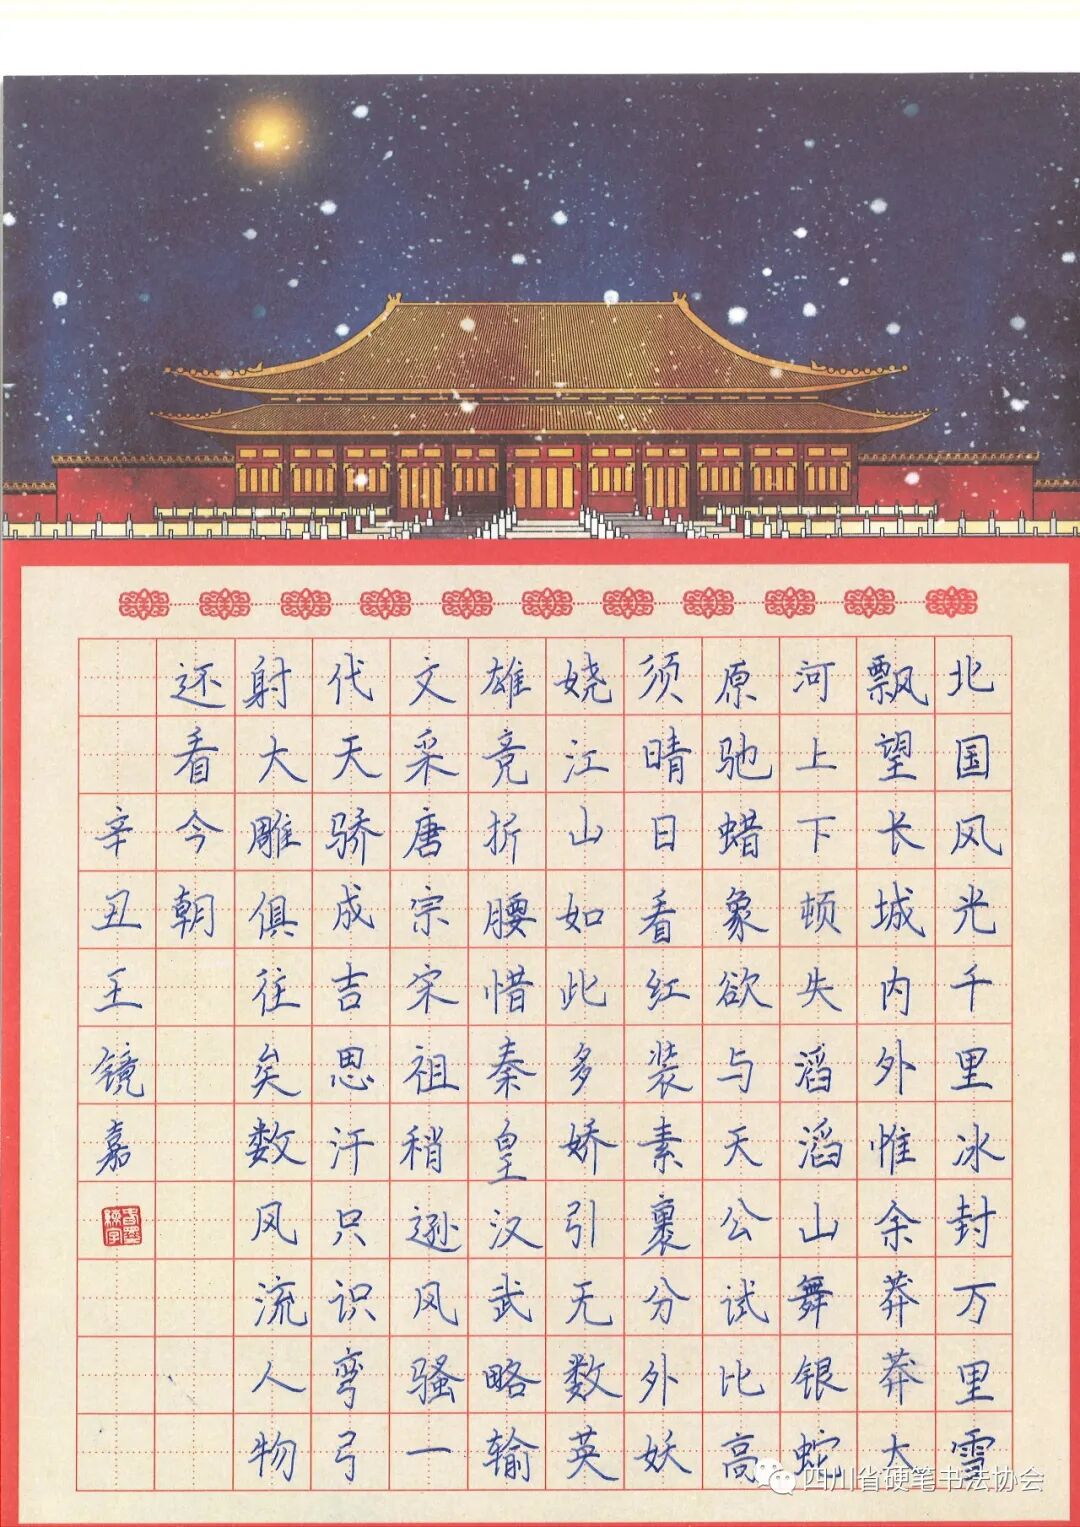 北国风光千里冰封万里雪
飘望长城内外惟余莽莽大
河上下顿失滔滔山舞银蛇
原驰蜡象欲与天公试比高
须晴日看红装素裹分外妖
娆江山如此多娇引无数英
雄竞折腰惜秦皇汉武略输
文采唐宗宋祖稍逊风骚一
代天骄成吉思汗只识弯弓
射大雕俱往矣数风流人物
还看今朝
辛丑王镜嘉
四川省硬笔书法协会